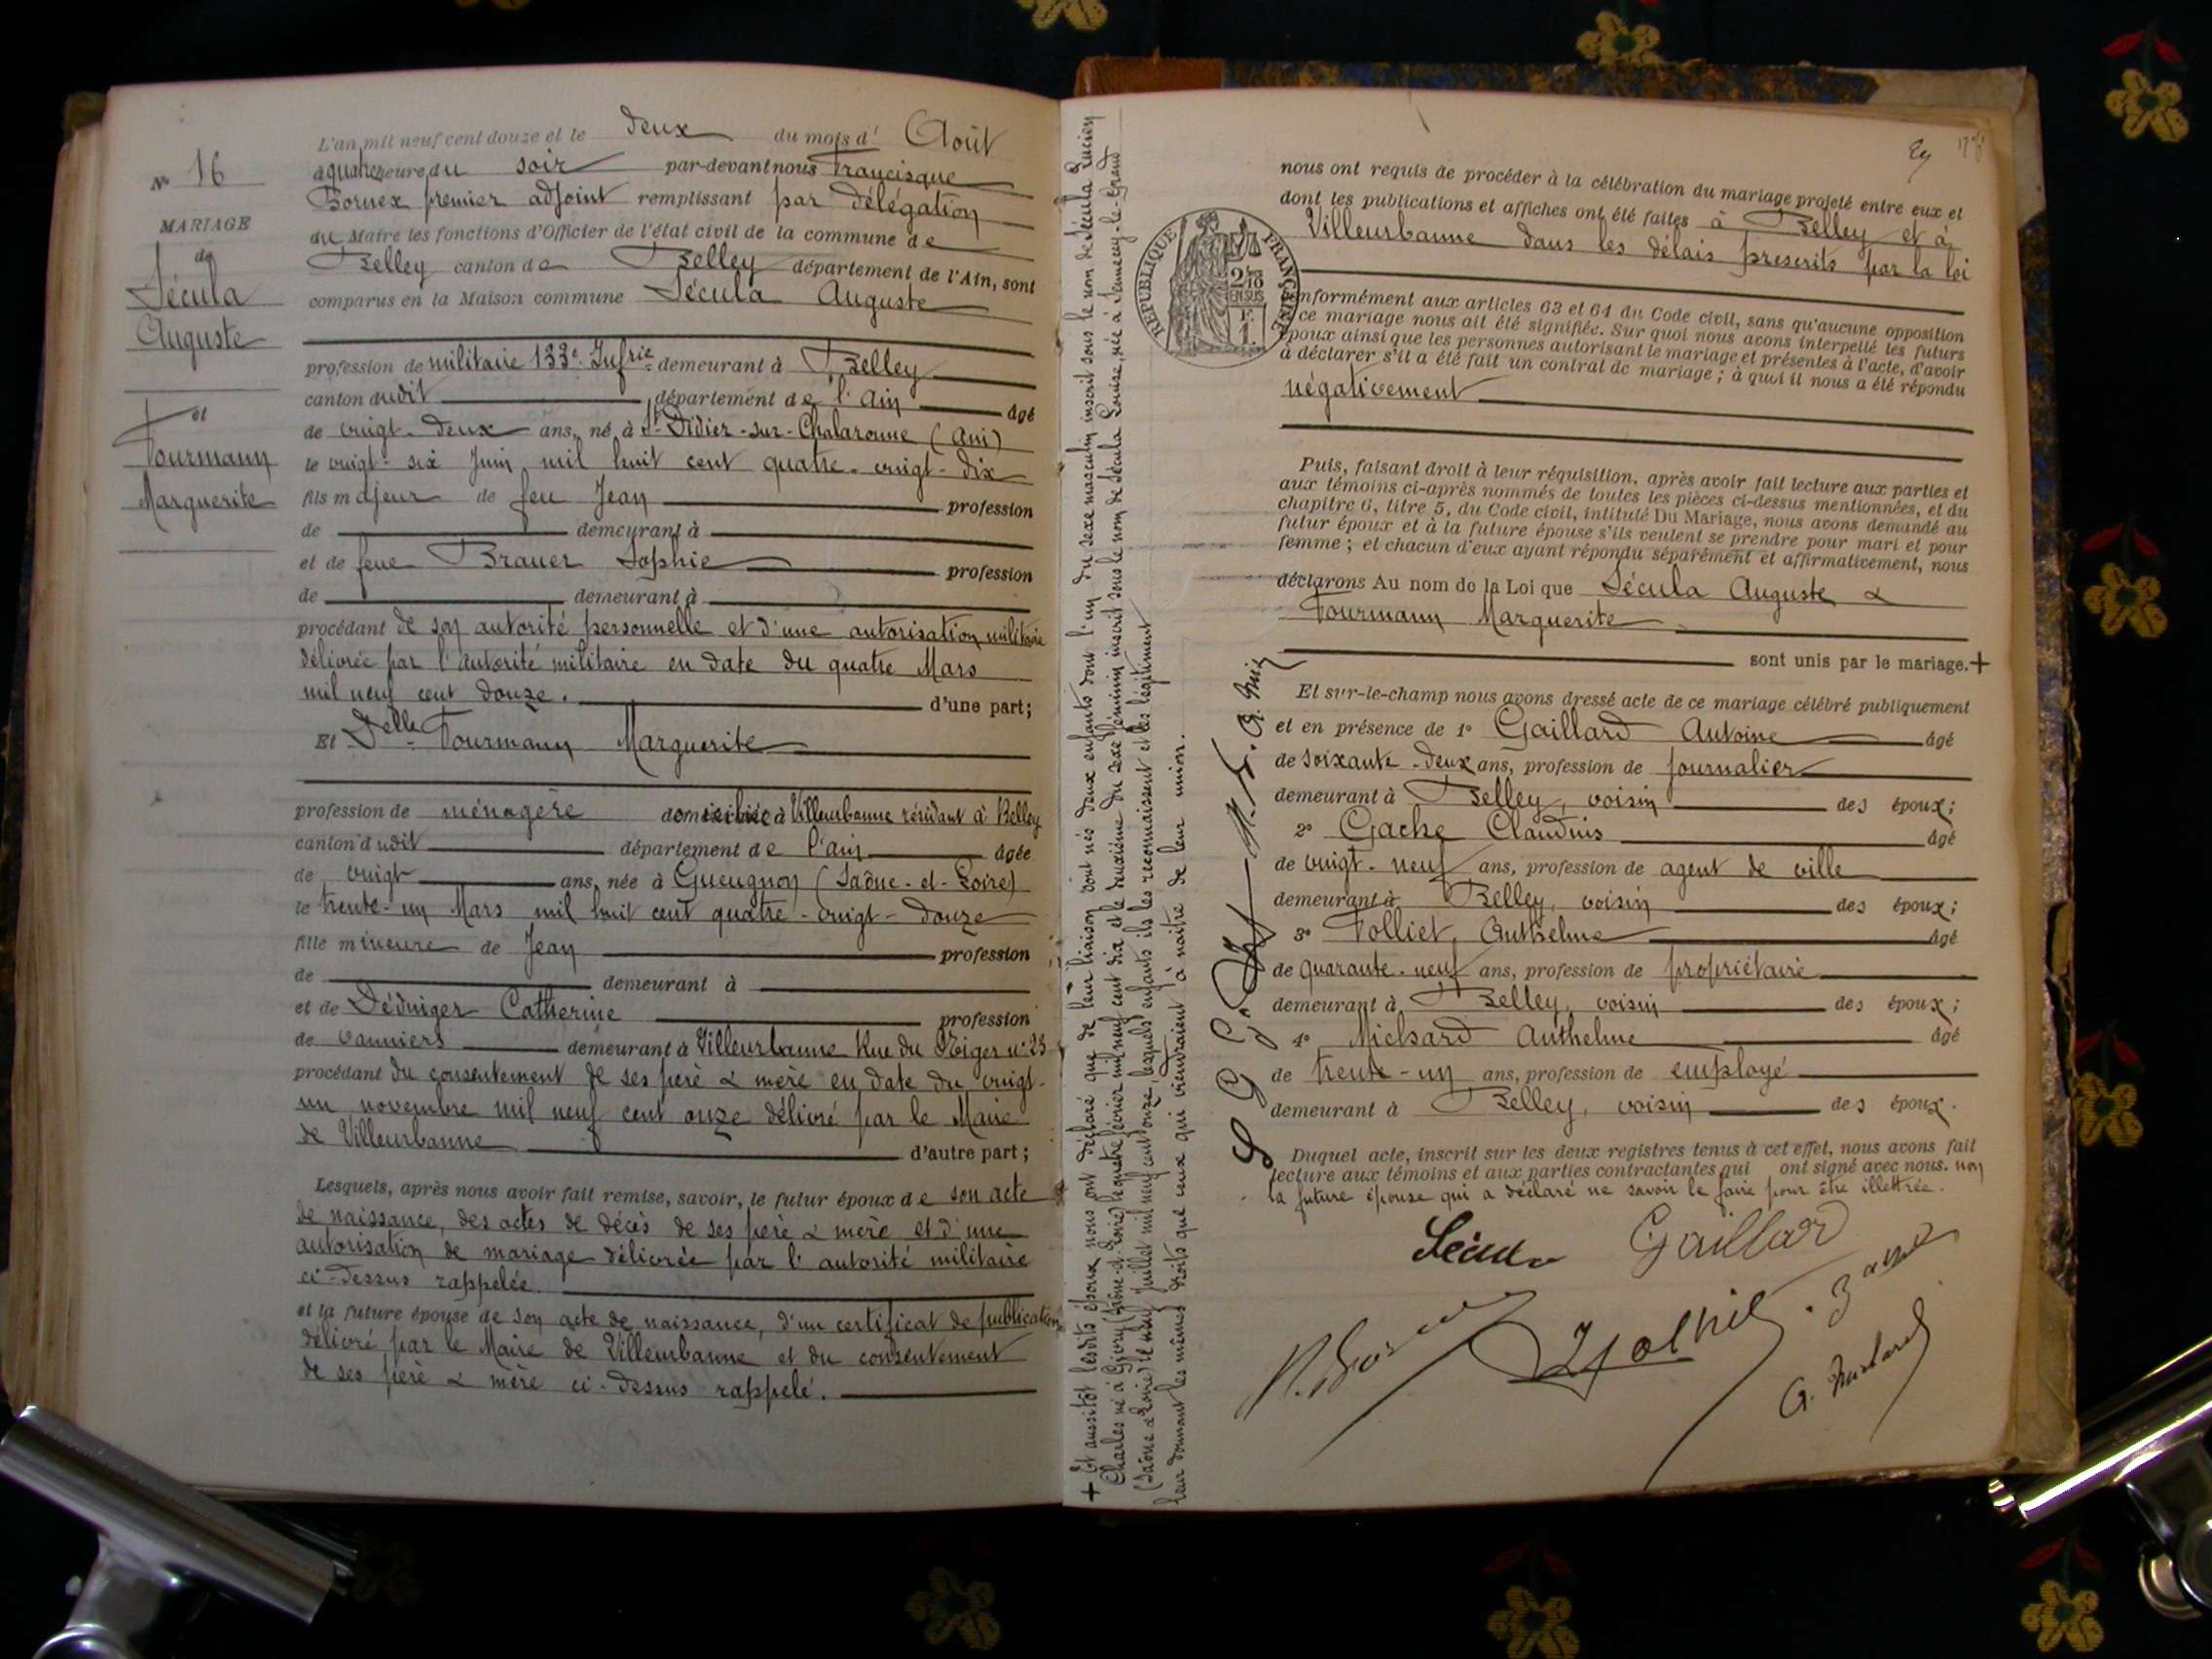 L'an mil neuf cent douze et le deux du mois d' Août
à quatre heure du soir par-devant nous Francisque
Bornex premier adjoint remplissant par délégation
du Maire les fonctions d'Officier de l'état civil de la commune de
Belley canton de Belley département de l'Ain, sont
comparus en la Maison commune Sécula Auguste
N° 16
MARIAGE
de
Sécula
Auguste
et
Fourmann
Marguerite
profession de militaire 133e Infrie demeurant à Belley
canton dudit département de l'Ain âgé
de vingt-deux ans, né à St-Didier-sur-Chalaronne (Ain)
le vingt-six Juin mil huit cent quatre-vingt-dix
fils majeur de feu Jean profession
de demeurant à
et de feue Brauer Sophie profession
de demeurant à
procédant de son autorité personnelle et d'une autorisation militaire
délivrée par l'autorité militaire en date du quatre Mars
mil neuf cent douze. d'une part;
Et Delle Fourmann Marguerite
profession de ménagère domiciliée à Villeurbanne résidant à Belley
canton dudit département de l'Ain âgée
de vingt ans, née à Gueugnon (Saône-et-Loire)
le trente-un Mars mil huit cent quatre-vingt-douze
fille mineure de Jean profession
de demeurant à
et de Déduiger Catherine profession
de vanniers demeurant à Villeurbanne Rue du Niger n° 23
procédant du consentement de ses père & mère en date du vingt-
un novembre mil neuf cent onze délivré par le Maire
de Villeurbanne d'autre part;
Lesquels, après nous avoir fait remise, savoir, le futur époux de son acte
de naissance, des actes de décès de ses père & mère et d'une
autorisation de mariage délivrée par l'autorité militaire
ci-dessus rappelée.
et la future épouse de son acte de naissance, d'un certificat de publication
délivré par le Maire de Villeurbanne et du consentement
de ses père & mère ci-dessus rappelé.
+ Et aussitôt lesdits époux nous ont déclaré que de leur liaison sont nés deux enfants dont l'un du sexe masculin inscrit sous le nom de Sécula Lucien
Charles né à Givry (Saône-et-Loire) le quatre février mil neuf cent dix et le deuxième du sexe féminin inscrit sous le nom de Sécula Louise, née à Sennecey-le-Grand
(Saône & Loire) le neuf juillet mil neuf cent onze, lesquels enfants ils les reconnaissent et les légitiment
leur donnant les mêmes droits que ceux qui viendraient à naître de leur union.
29
nous ont requis de procéder à la célébration du mariage projeté entre eux et
dont les publications et affiches ont été faites à Belley et à
Villeurbanne dans les délais prescrits par la loi
RÉPUBLIQUE FRANÇAISE
2/10
EN SUS
1 F.
conformément aux articles 63 et 64 du Code civil, sans qu'aucune opposition
à ce mariage nous ait été signifiée. Sur quoi nous avons interpellé les futurs
époux ainsi que les personnes autorisant le mariage et présentes à l'acte, d'avoir
à déclarer s'il a été fait un contrat de mariage; à quoi il nous a été répondu
négativement
Puis, faisant droit à leur réquisition, après avoir fait lecture aux parties et
aux témoins ci-après nommés de toutes les pièces ci-dessus mentionnées, et du
chapitre 6, titre 5, du Code civil, intitulé Du Mariage, nous avons demandé au
futur époux et à la future épouse s'ils veulent se prendre pour mari et pour
femme; et chacun d'eux ayant répondu séparément et affirmativement, nous
déclarons Au nom de la Loi que Sécula Auguste &
Fourmann Marguerite
sont unis par le mariage.+
Et sur-le-champ nous avons dressé acte de ce mariage célébré publiquement
et en présence de 1° Gaillard Antoine âgé
de soixante-deux ans, profession de journalier
demeurant à Belley, voisin des époux;
2° Gache Claudius âgé
de vingt-neuf ans, profession de agent de ville
demeurant à Belley, voisin des époux;
3° Folliet, Anthelme âgé
de quarante-neuf ans, profession de propriétaire
demeurant à Belley, voisin des époux;
4° Michard Anthelme âgé
de trente-un ans, profession de employé
demeurant à Belley, voisin des époux.
Duquel acte, inscrit sur les deux registres tenus à cet effet, nous avons fait
lecture aux témoins et aux parties contractantes qui ont signé avec nous. non
la future épouse qui a déclaré ne savoir le faire pour être illettrée.
Sécula Gaillard